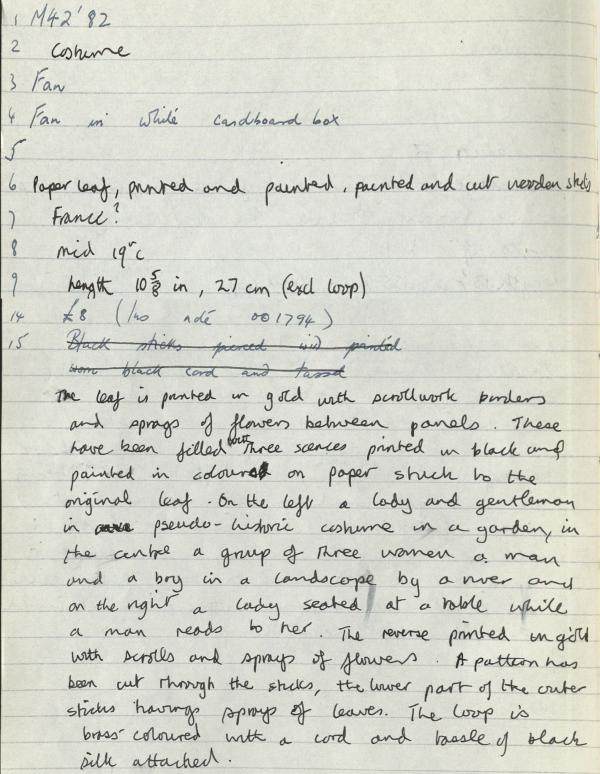 1 M42'82
2 Costume
3 Fan
4 Fan in white cardboard box
5
6 Paper leaf, printed and painted, painted and cut wooden sticks
7 France?
8 mid 19th c
9 Length 10 5/8 in, 27 cm (excl loop)
14 £8 (Ins note 001794)
15 Black sticks pierced and painted
worn black cord and tassel
The leaf is printed in gold with scrollwork borders
and sprays of flowers between panels. These
have been filled with three scences printed in black and
painted in colour on paper stuck to the
original leaf. On the left a lady and gentleman
in pseudo-historic costume in a garden, in
the centre a group of three women a man
and a boy in a landscape by a river and
on the right a lady seated at a table while
a man reads to her. The reverse printed in gold
with scrolls and sprays of flowers. A pattern has
been cut through the sticks, the lower part of the outer
sticks havings sprays of leaves. The loop is
brass-coloured with a cord and tassle of black
silk attached.